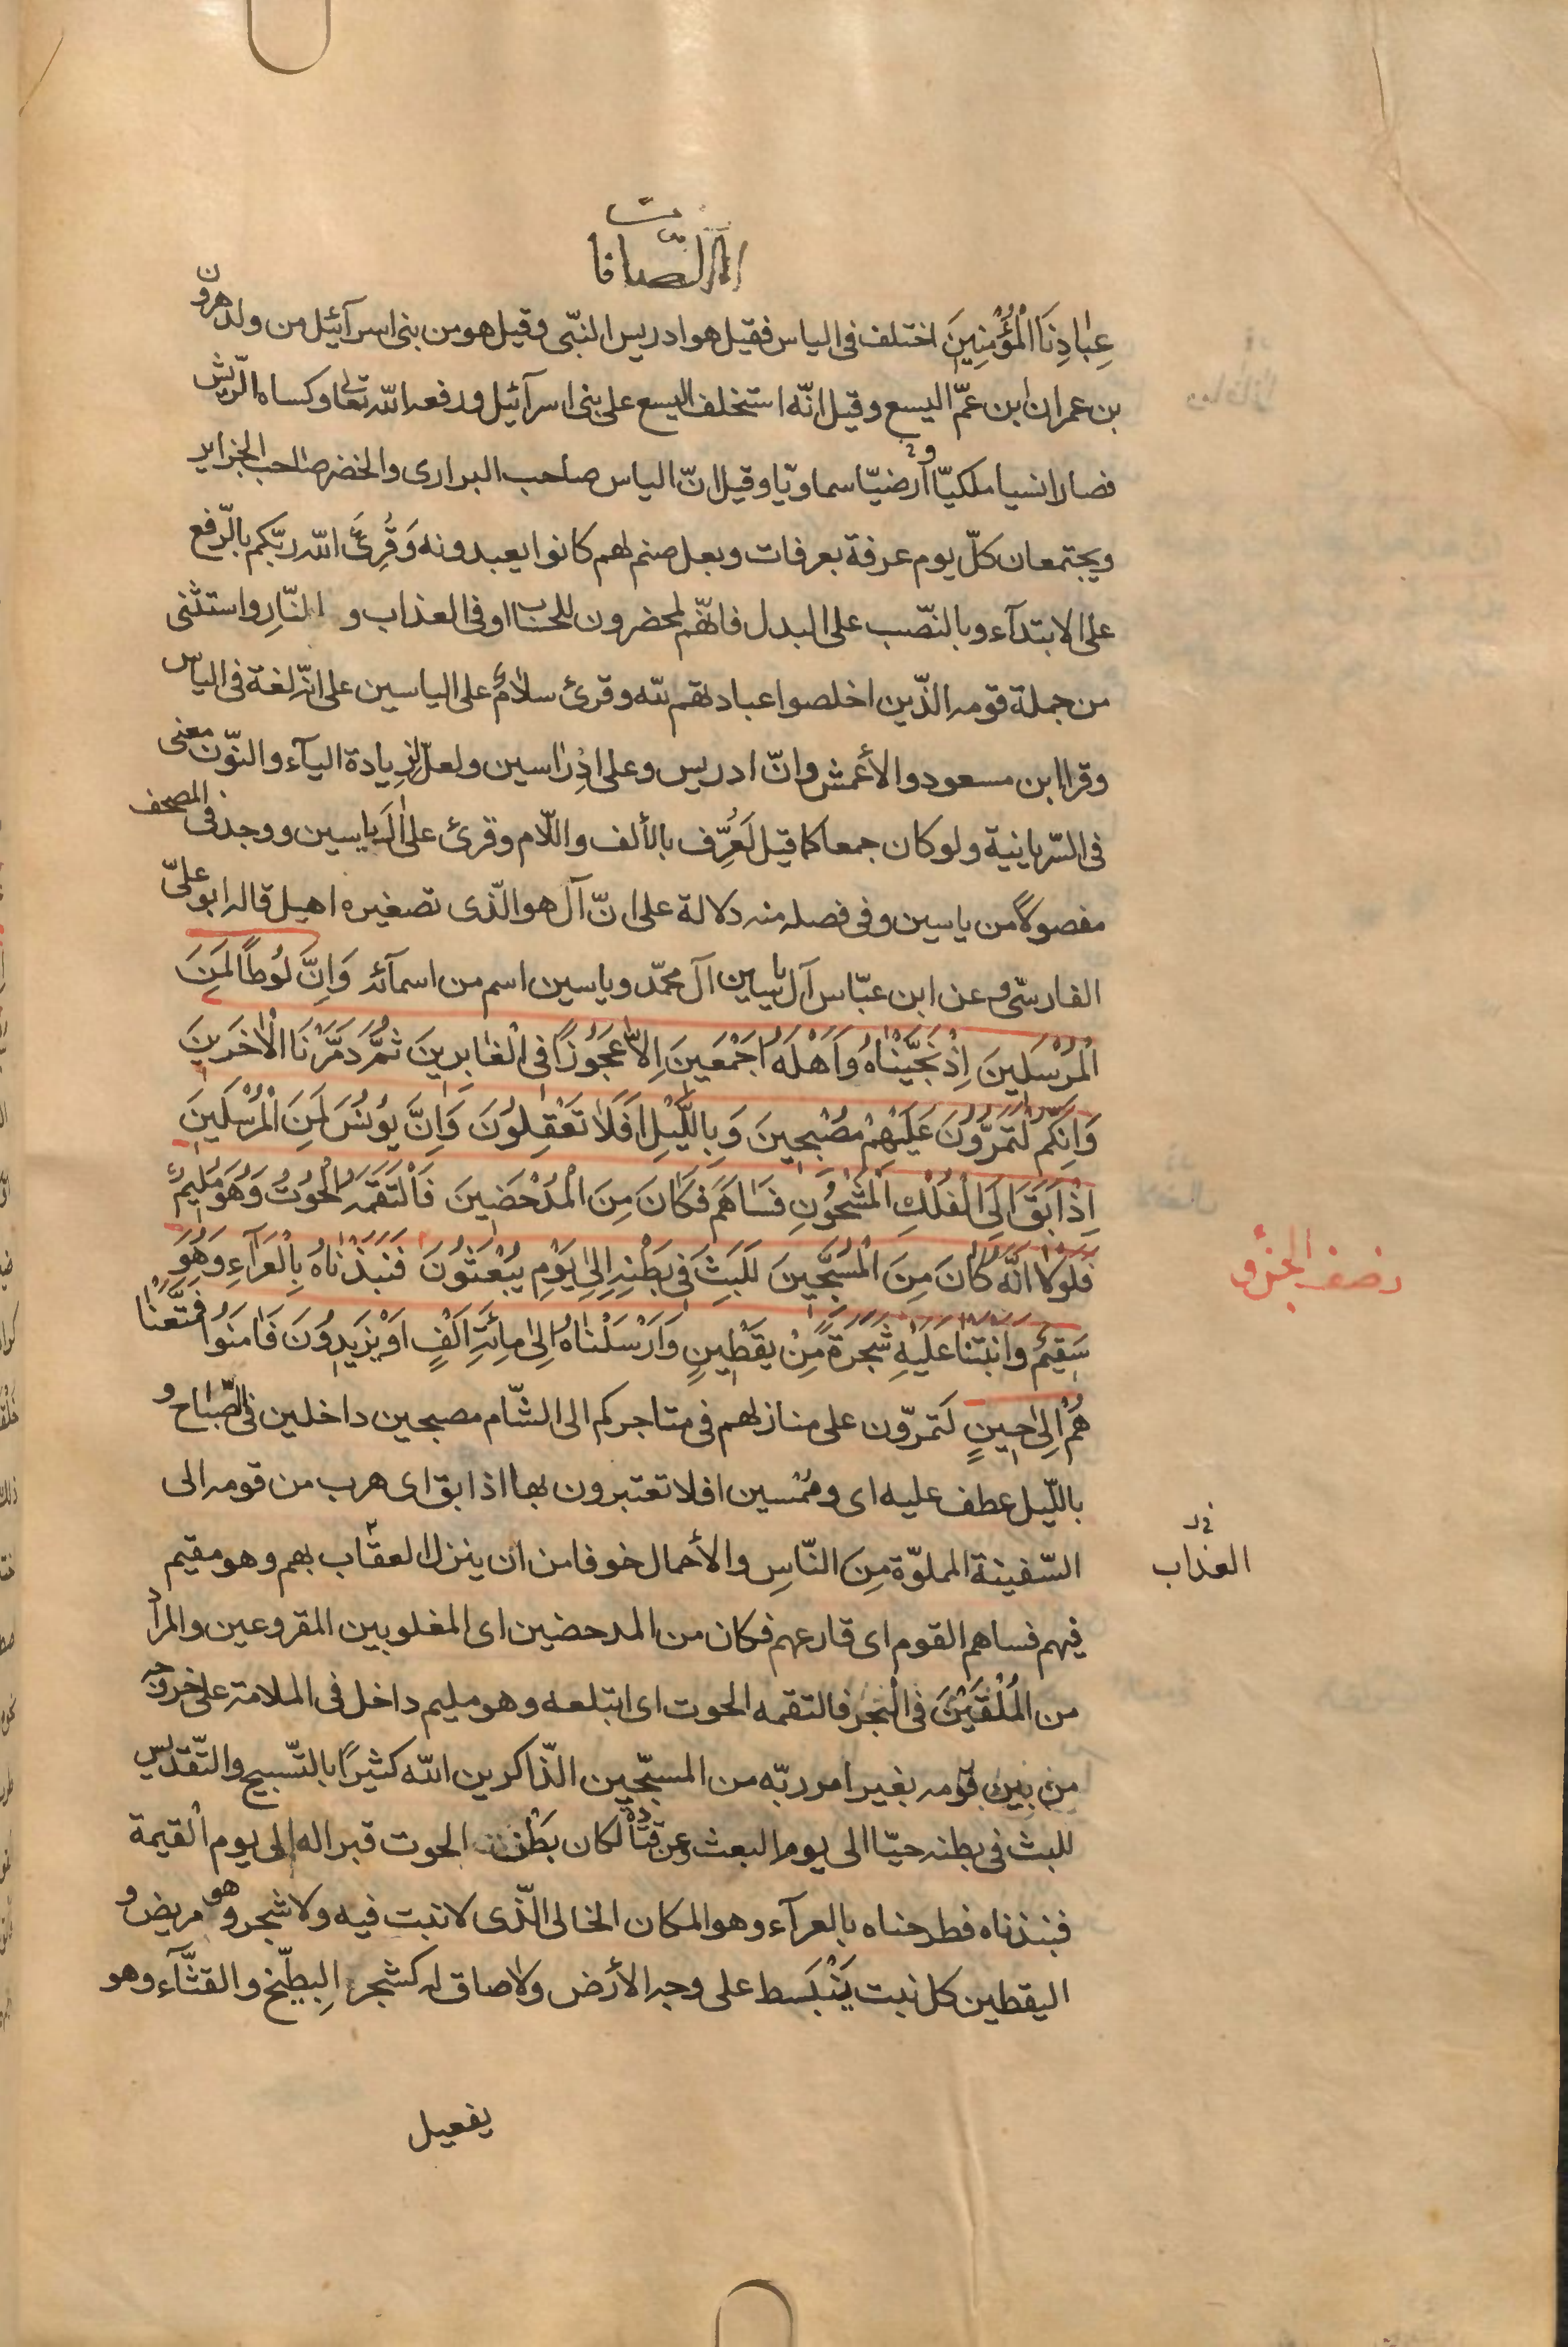 الصّافات
عِبٰادِنَا الْمُؤْمِنِينَ اختلف فى الياس فقيل هو ادريس النبّى وقيل هو من بنى اسرآئيل من ولد هرون
بن عمران ابن عمّ اليسع وقيل انّه استخلف اليسع على بنى اسرآئيل ورفعه الله تعالى وكساه الرّيش
فصار انسيا ملكيّا وارضيّا سماويّا وقيل انّ الياس صاحب البرارى والخضر صاحب الجزاير
ويجتمعان كلّ يوم عرفة بعرفات وبعل صنم لهم كانوا يعبدونه وَقُرِئَ الله ربّكم بالرّفع
على الابتدآء وبالنّصب على البدل فانّهم لمحضرون للحساب او فى العذاب و النّارِ واستثنى
من جملة قومه الذّين اخلصوا عبادتهم لله وقرئ سلامٌ على الياسين على انّه لغة فى الياس
وقرا ابن مسعود والأعمش وانّ ادريس وعلى ادْرٰاسين ولعلّ لزيادة اليآء والنوّن معنى
فى السّريانية ولو كان جمعا كما قيل لَعُرِّف بالألف واللّام وقرئ على اٰلَ ياسين ووجد فى المصحف
مفصولًا من ياسين وفى فصله منه دلالة على انّ آل هو الّذى تصغيره اهيل قاله ابو علىّ
الفارسّى وعن ابن عبّاس آل ياسين آل محمّد وياسين اسم من اسمآئه وَاِنَّ لُوطًا لَمَِنَ
الْمُرْسَلِينَ اِذْ نَجَّيْنٰاهُ وَاَهْلَهُ اَجْمَعِينَ اِلاّٰ عَجُوزًا فِى الْغٰابِرِينَ ثُمَّ دَمَّرْنَا الْاٰخَرِينَ
وَاِنَّكُمْ لَتَمُرُّونَ عَلَيْهِمْ مُصْبِحِينَ وَبِاللَّيْلِ اَفَلاٰ تَعْقِلُونَ وَاِنَّ يُونُسَ لَمِنَ الْمُرْسَلِينَ
اِذْ اَبَقَ اِلَى الْفُلْكِ الْمَشْحُونِ فَسٰاهَمَ فَكٰانَ مِنَ الْمُدْحَضِينَ فَالْتَقَمَهُ الْحُوتُ وَهُوَ مُلِيمٌ
فَلَوْلاٰ اَنَّهُ كٰانَ مِنَ الْمُسَبِّحِينَ لَلَبِثَ فِى بَطْنِهِ اِلىٰ يَوْمِ يُبْعَثُونَ فَنَبَذْنٰاهُ بِالْعَرٰآءِ وَهُوَ
سَقِيمٌ وَاَنْبَتْنٰا عَلَيْهِ شَجَرَةً مِنْ يَقْطِينٍ وَاَرْسَلْنٰاهُ اِلىٰ مِائَةِ اَلْفٍ اَوْ يَزِيدُونَ فَاٰمَنُوا فَمَتَّعْنٰا
هُمْ اِلىٰ حِينٍ لَتَمرّون على منازلهم فى متاجركم الى الشّام مصبحين داخلين فى الصّباح و
باللّيل عطف عليه اى وممْسين افلا تعتبرون بها اذ ابق اى هرب من قومه الى
السّفينة المملوّة مِنَ النّاسِ والأحمال خوفا من ان ينزل العقاب بهم وهو مقيم
فيهم فساهم القوم اى قارعهم فكان من المدحضين اى المغلوبين المقروعين والمراد
من المُلْقَيْنَ فى الْبَحْر فالتقمه الحوت اى ابتلعه وهو مليم داخل فى الملامة على خروجه
من بين قومه بغير امر ربّه من المسبّحين الذّاكرين الله كثيرًا بالتّسبيح والتّقديس
للبث فى بطنه حيّا الى يوم البعث وعن قتادة لكان بَطْن الحوت قبرا له الى يوم القيمة
فنبذناه فطرحناه بالعرآء وهو المكان الخالى الّذى لا نبت فيه ولا شجر وهو مريض و
اليقطين كل نبت يَنْبَسط على وجه الأرض ولا صاق له كشجر البِطّيخ والقثّآء وهو
نصف الجزو
العذاب
يفعيل